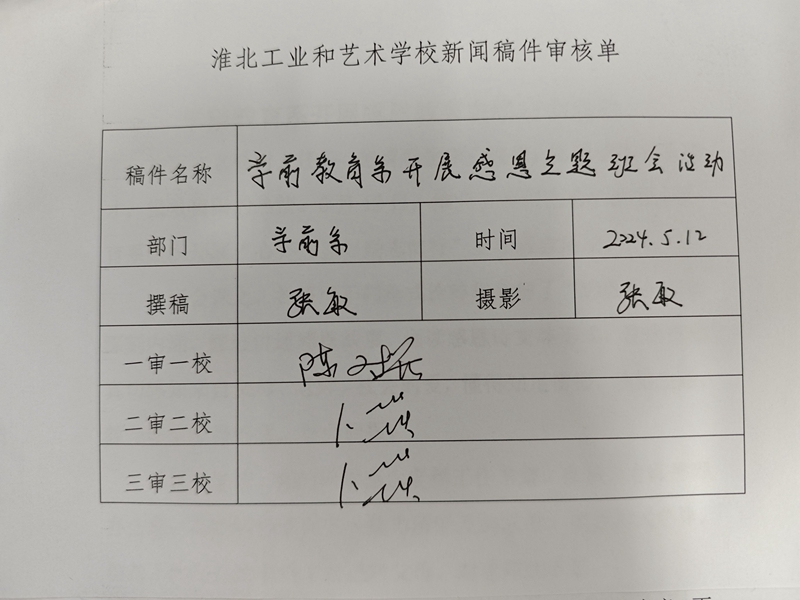 淮北工业和艺术学校新闻稿件审核单
稿件名称 学前教育系开展感恩主题班会活动
部门 学前系 时间 2024.5.12
撰稿 张敏 摄影 张敏
一审一校 陈
二审二校
三审三校